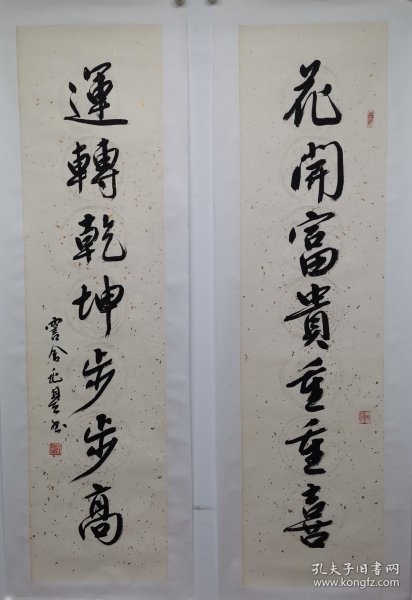 花開富貴重重喜
運轉乾坤步步高
孔夫子旧书网
www.kongfz.com